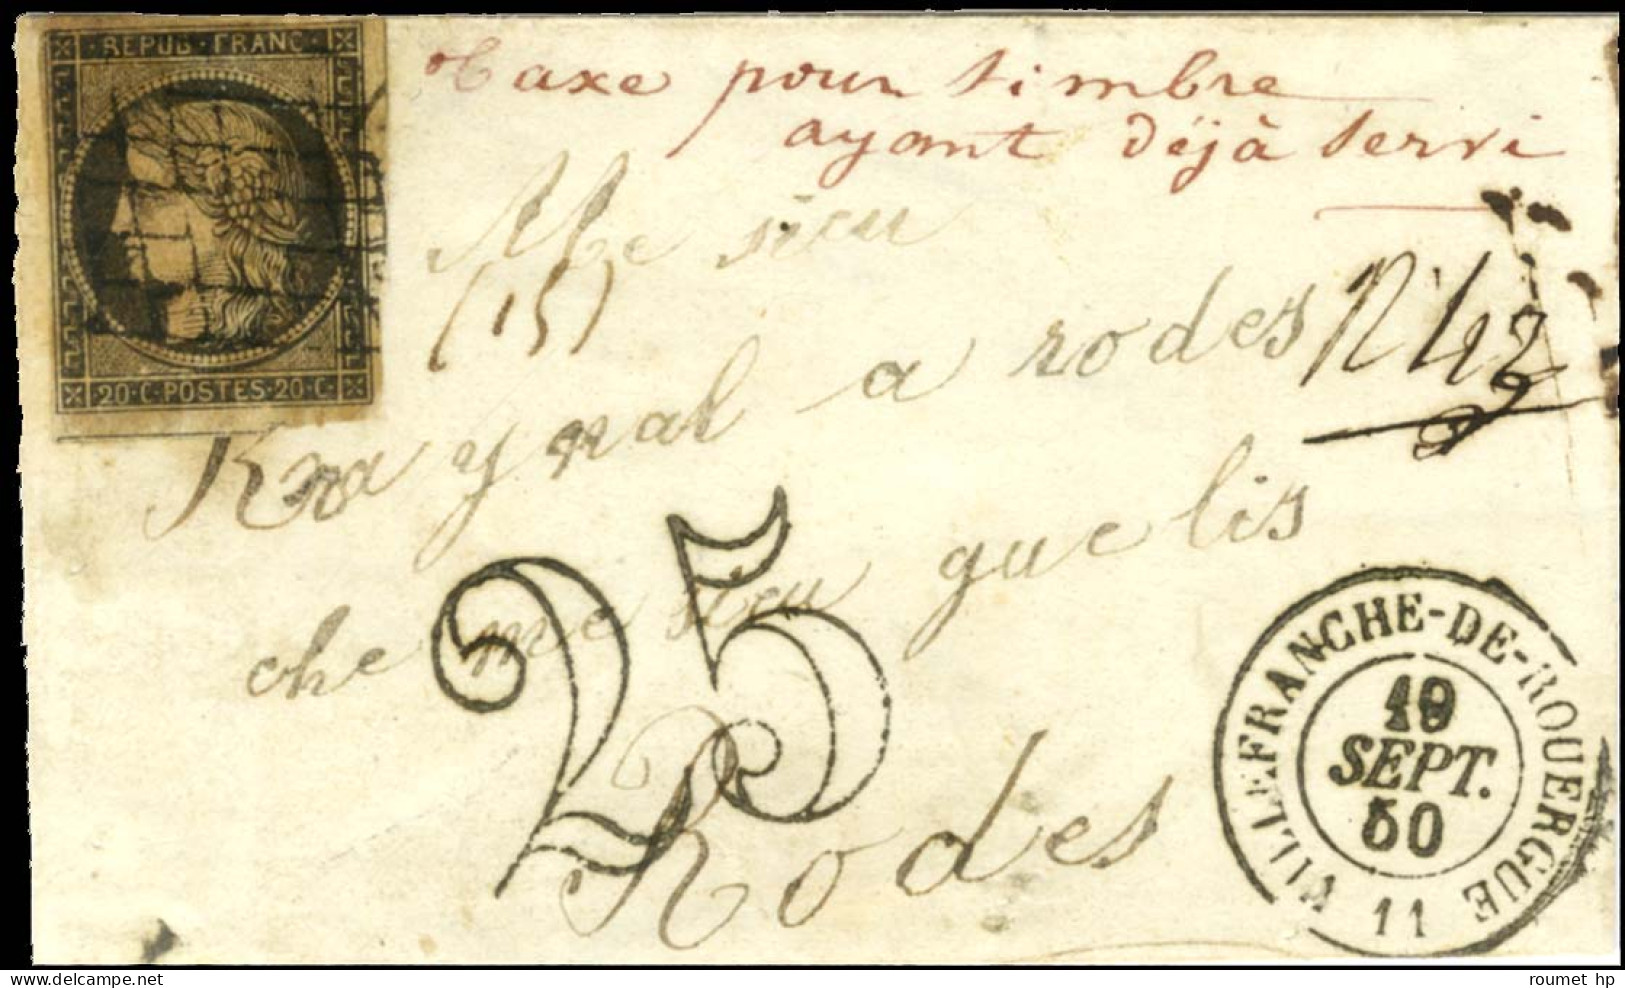 REPUB·FRANC·
20·C·POSTES·20·C·
Taxe pour timbre
ayant déjà servi
Me sieu
(15)
Raynal a rodes
che me sieu guelis
25
Rodes
VILLEFRANCHE-DE-ROUERGUE
19
SEPT.
50
11
roumet hp